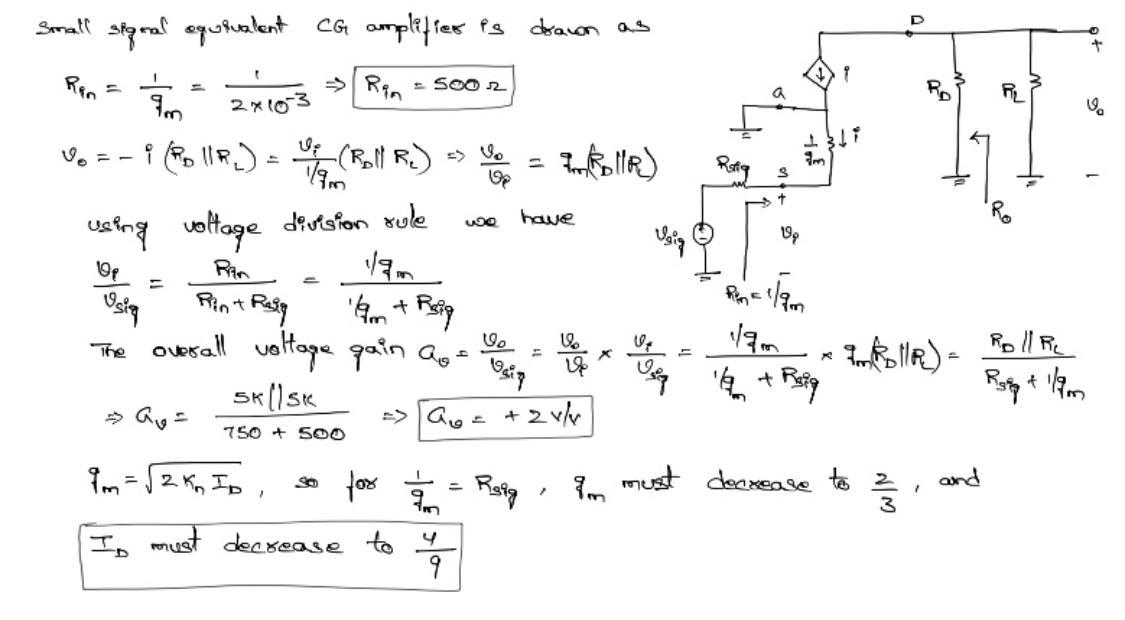 Small signal equivalent CG amplifier is drawn as
R_in = 1/g_m = 1/(2×10^-3) ⇒ R_in = 500 Ω
v_o = - i (R_D || R_L) = v_i/(1/g_m) (R_D || R_L) ⇒ v_o/v_i = g_m(R_D || R_L)
using voltage division rule we have
v_i/v_sig = R_in/(R_in + R_sig) = (1/g_m)/(1/g_m + R_sig)
The overall voltage gain a_v = v_o/v_sig = v_o/v_i × v_i/v_sig = (1/g_m)/(1/g_m + R_sig) × g_m(R_D || R_L) = (R_D || R_L)/(R_sig + 1/g_m)
⇒ a_v = (5K || 5K)/(750 + 500) ⇒ a_v = + 2 v/v
g_m = √(2 K_n I_D), so for 1/g_m = R_sig, g_m must decrease to 2/3, and
I_D must decrease to 4/9
D
+
i
G
R_D
R_L
v_o
1/g_m
i
R_sig
S
+
R_o
-
v_sig
v_i
-
R_in = 1/g_m